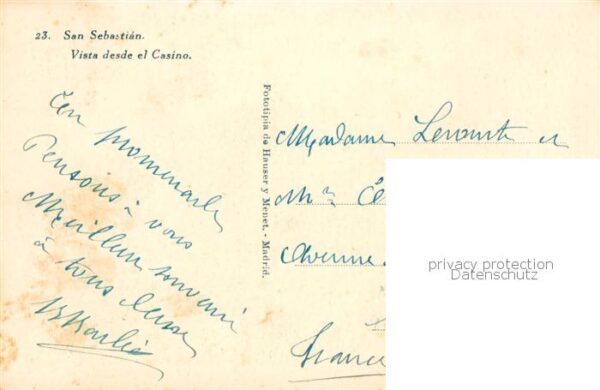 23. San Sebastián.
Vista desde el Casino.
En promenade
Pensons à vous
Meilleur souvenir
à tous
Fototipia de Hauser y Menet. - Madrid.
Madame et
Mr
Avenue
France
privacy protection
Datenschutz